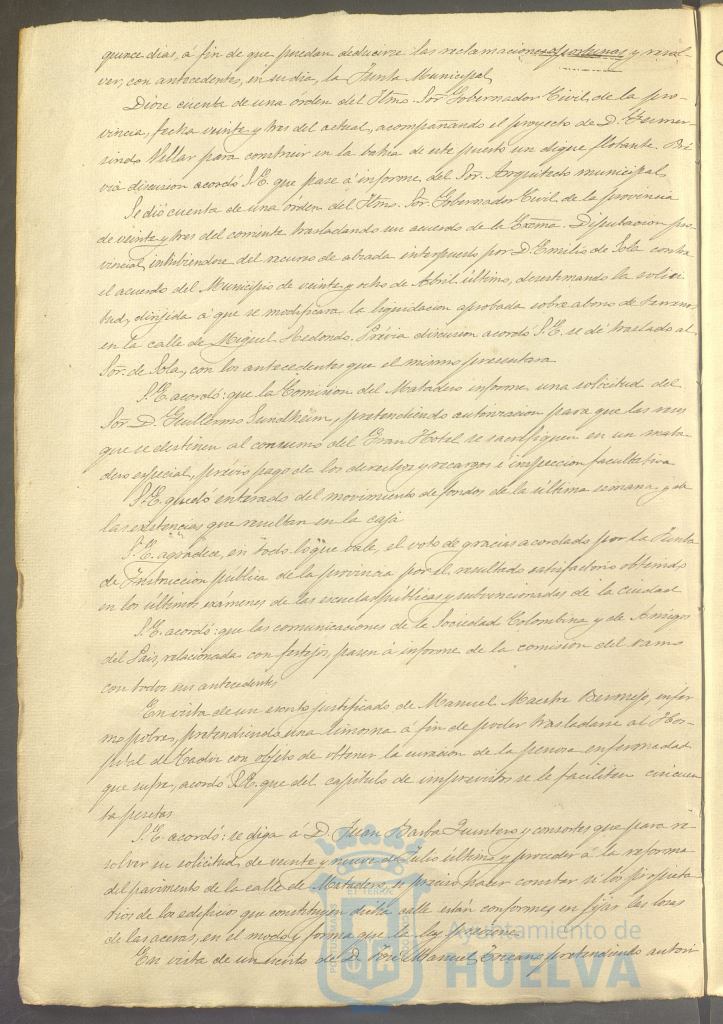 quince dias, á fin de que puedan deducirse las reclamaciones oportunas y resol-
ver, con antecedentes, en su dia, la Junta Municipal.
Dióse cuenta de una órden del Iltmo. Sor. Gobernador Civil de la pro-
vincia, fecha veinte y tres del actual, acompañando el proyecto de D. Gumer-
sindo Villar para construir en la bahia de este puerto un dique flotante. Pré-
via discusion acordó S.E. que pase á informe del Sor. Arquitecto municipal.
Se dió cuenta de una órden del Iltmo. Sor. Gobernador Civil de la provincia
de veinte y tres del corriente trasladando un acuerdo de la Excma. Diputacion pro-
vincial, inhibiéndose del recurso de alzada interpuesto por D. Emilio de Sola contra
el acuerdo del Municipio de veinte y ocho de Abril último, desestimando la solici-
tud, dirijida á que se modificara la liquidacion aprobada sobre abono de terrenos
en la calle de Miguel Redondo. Prévia discusion acordó S.E. se dé traslado al
Sor. de Sola, con los antecedentes que el mismo presentara.
S.E. acordó: que la Comision del Matadero informe una solicitud del
Sor. D. Guillermo Sundheim, pretendiendo autorizacion para que las reses
que se destinen al consumo del Gran Hotel se sacrifiquen en un mata-
dero especial, previo pago de los derechos y recargos é inspeccion facultativa.
S.E. quedó enterado del movimiento de fondos de la última semana y de
las existencias que resultan en la caja.
S.E. agradece, en todo lo que vale, el voto de gracias acordado por la Junta
de Instruccion pública de la provincia por el resultado satisfactorio obtenido
en los últimos exámenes de las escuelas públicas y subvencionadas de la ciudad.
S.E. acordó: que las comunicaciones de la Sociedad Colombina y de Amigos
del Pais, relacionadas con festejos, pasen á informe de la comision del ramo
con todos sus antecedentes.
En vista de un escrito justificado de Manuel Maestre Bermejo, enfer-
mo pobre, pretendiendo una limosna á fin de poder trasladarse al Hos-
pital de Cadiz con objeto de obtener la curacion de la penosa enfermedad
que sufre, acordó S.E. que del capítulo de imprevistos se le faciliten cincuen-
ta pesetas.
S.E. acordó: se diga á D. Juan Barba Quintero y consortes que para re-
solver su solicitud de veinte y nueve de Julio último y proceder á la reforma
del pavimento de la calle de Matadero, es preciso hacer constar si los propieta-
rios de los edificios que constituyen dicha calle están conformes en fijar las losas
de las aceras, en el modo y forma que la ley previene.
En vista de un escrito de D. José Manuel Toscano pretendiendo autori-
Ayuntamiento de
HUELVA